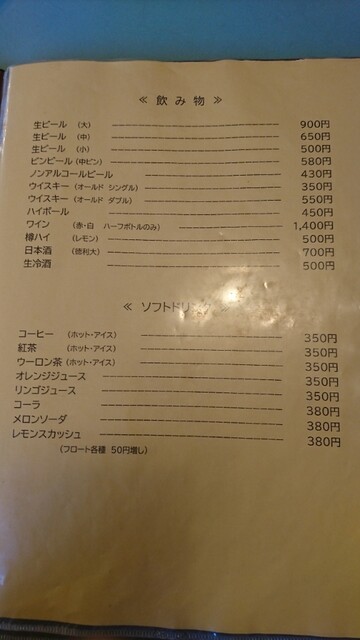 ≪ 飲み物 ≫
生ビール (大) 900円
生ビール (中) 650円
生ビール (小) 500円
ビンビール (中ビン) 580円
ノンアルコールビール 430円
ウイスキー (オールド シングル) 350円
ウイスキー (オールド ダブル) 550円
ハイボール 450円
ワイン (赤・白 ハーフボトルのみ) 1,400円
樽ハイ (レモン) 500円
日本酒 (徳利大) 700円
生冷酒 500円
≪ ソフトドリンク
コーヒー (ホット・アイス) 350円
紅茶 (ホット・アイス) 350円
ウーロン茶 (ホット・アイス) 350円
オレンジジュース 350円
リンゴジュース 350円
コーラ 380円
メロンソーダ 380円
レモンスカッシュ 380円
(フロート各種 50円増し)